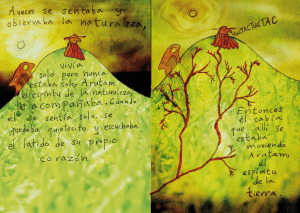 A veces se sentaba y
observaba la naturaleza,
vivía
solo pero nunca
estaba solo, Arutam,
el espíritu de la naturaleza,
le acompañaba. Cuando
él se sentía solo, se
quedaba quietecito y escuchaba
el latido de su propio
corazón
TACTACTAC
Entonces
él sabía
que allí se
estaba
moviendo
Arutam,
el
espíritu
de la
tierra